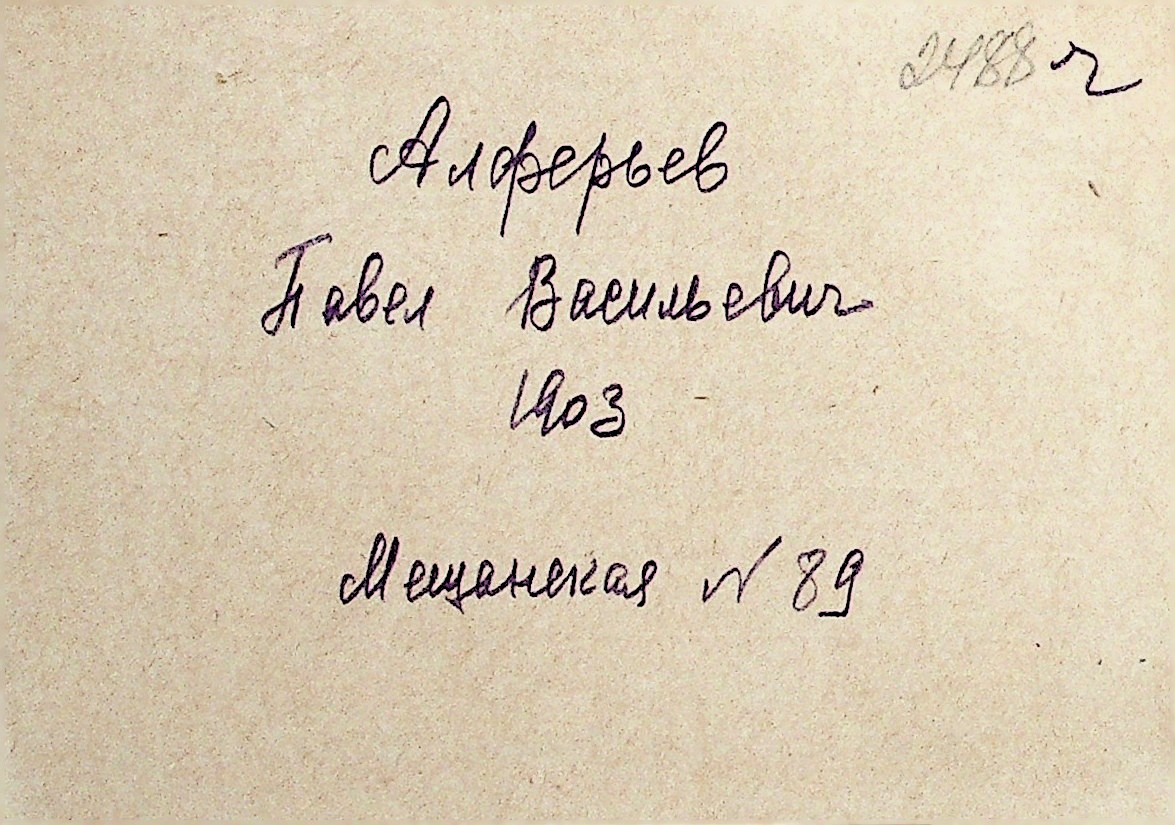 2488 ч
Алферьев
Павел Васильевич
1903
Мещанская N 89